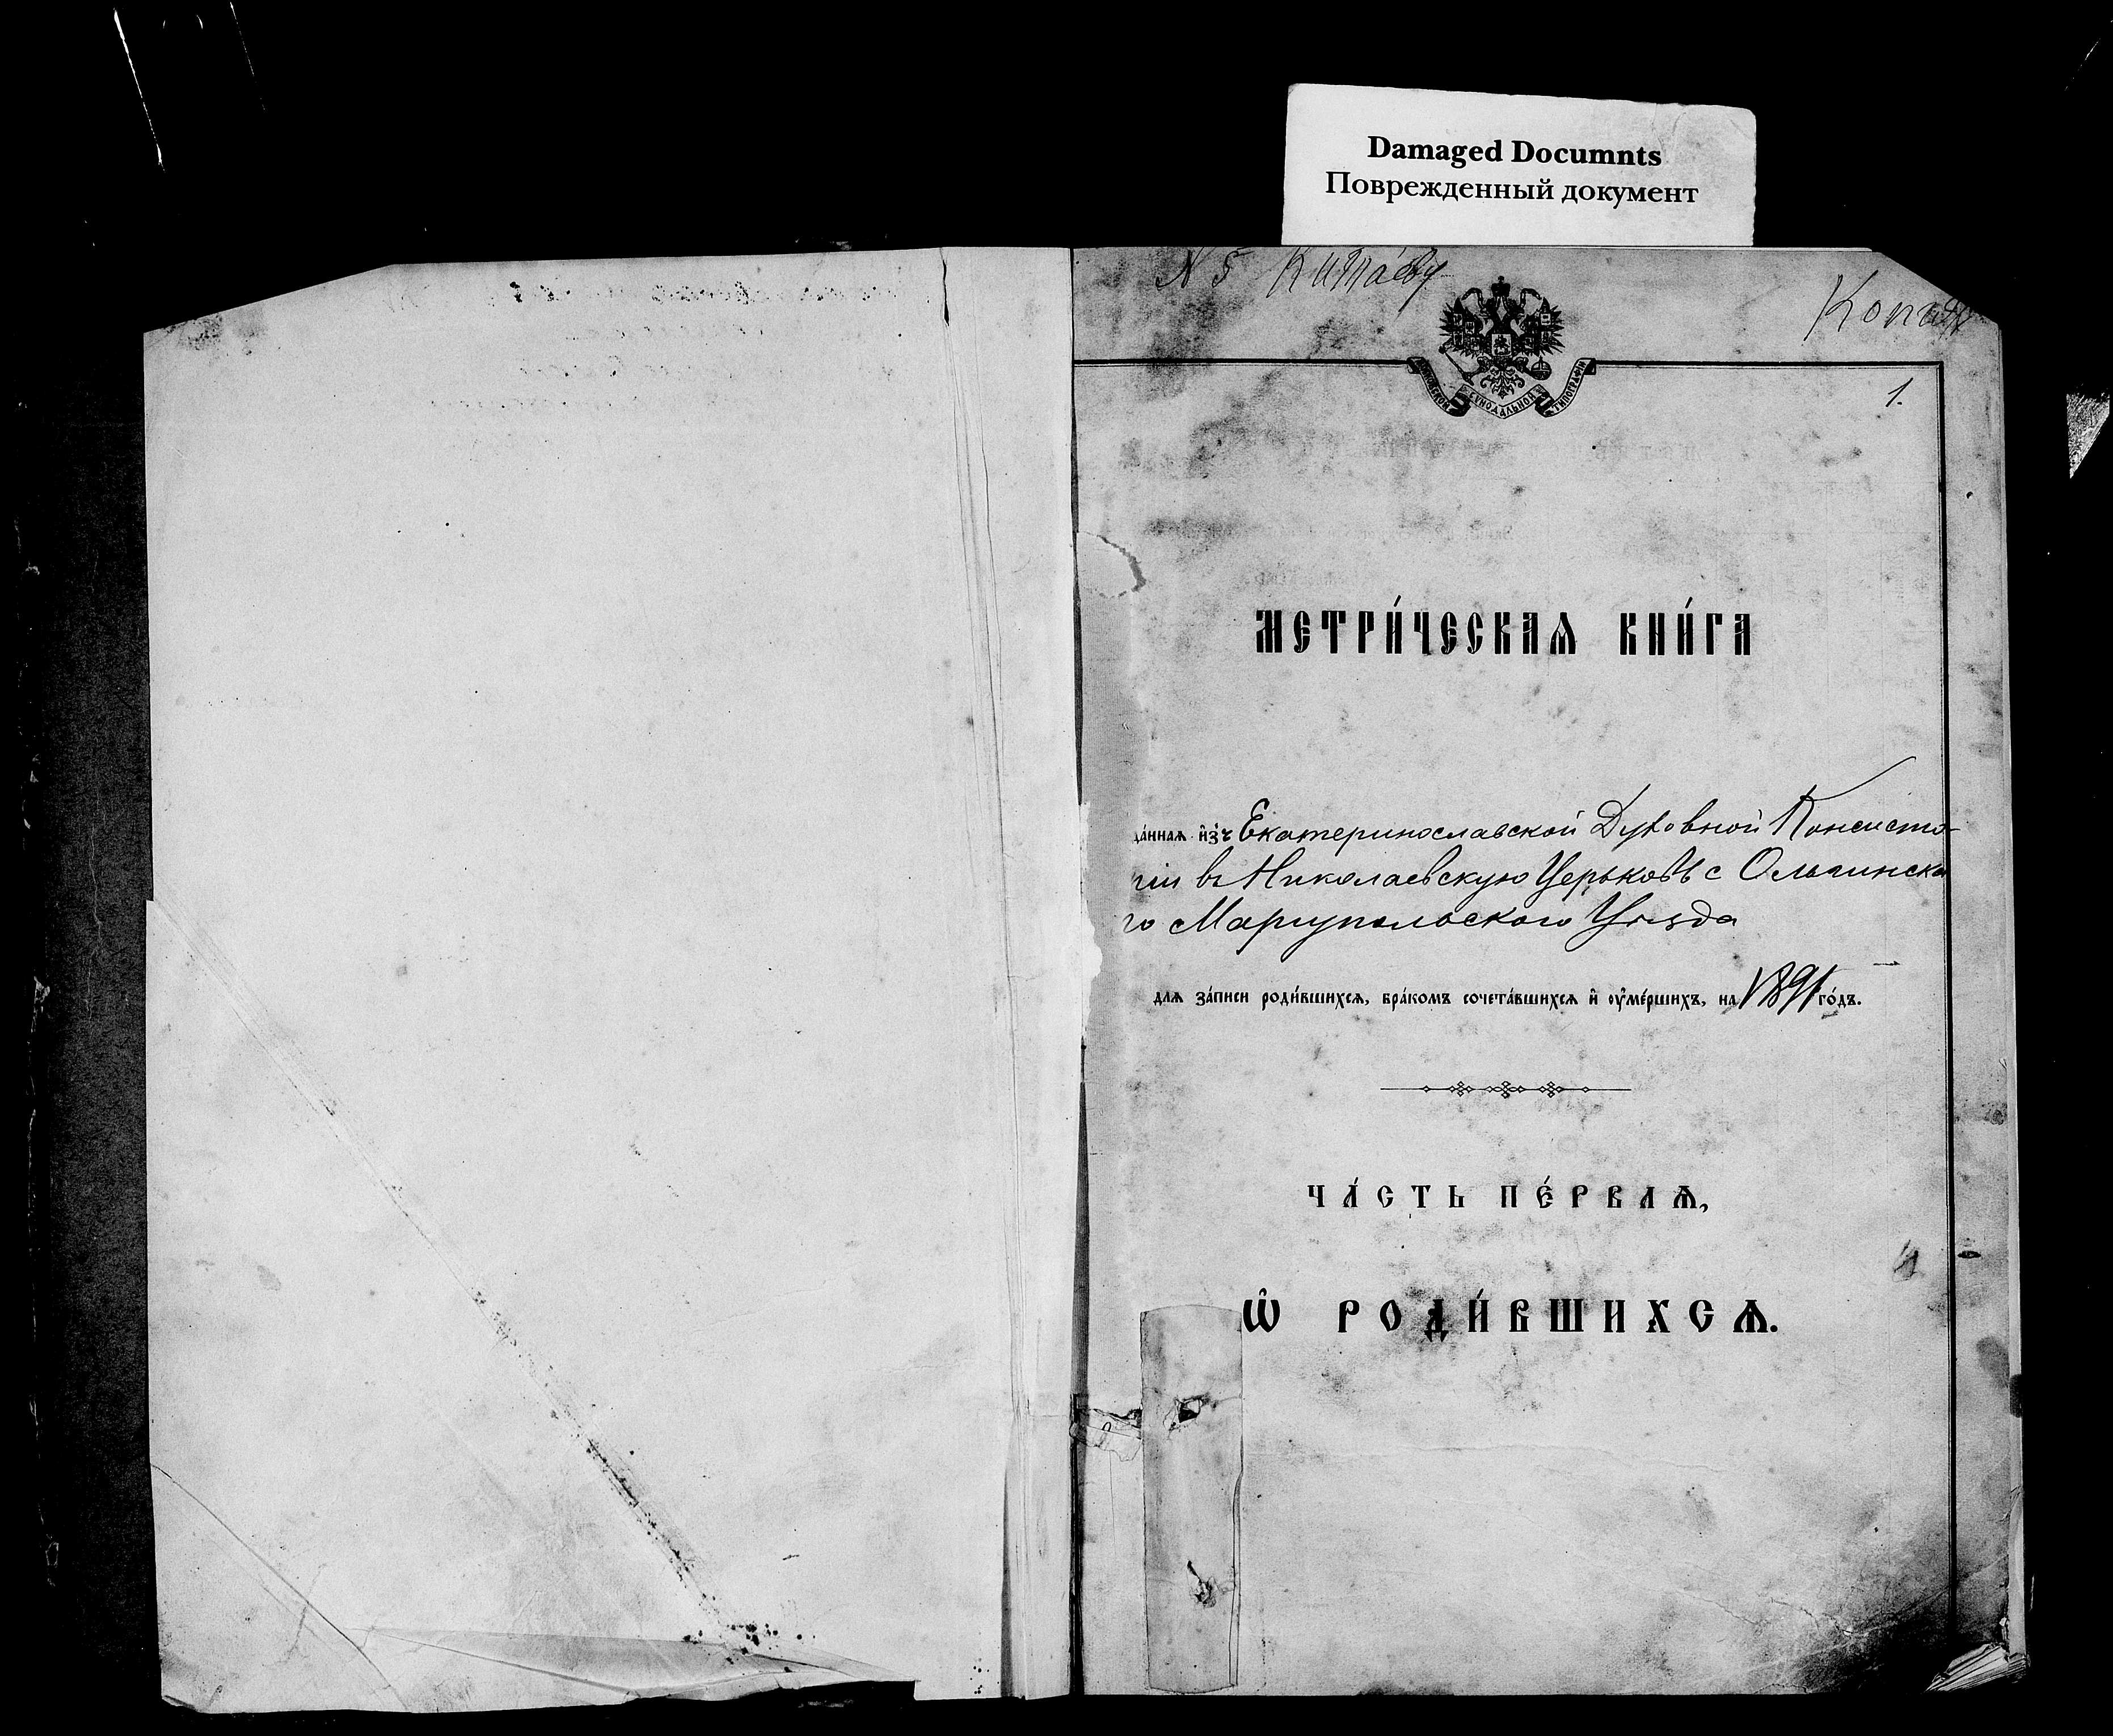 Damaged Documnts
Поврежденный документ
N 5 Китаеву
1.
МОСКОВСКОЙ СѴНОДАЛЬНОЙ ТИПОГРАФІИ
МЕТРИ́ЧЕСКАѦ КНИ́ГА
да́ннаѧ и҆́зъ Екатеринославской Духовной Консисто-
ріи въ Николаевскую Церьковь с Ольгинска
го Мариупольского Уѣзда
длѧ за́писи роди́вшихсѧ, бра́комъ сочета́вшихсѧ и҆ ѹ҆ме́ршихъ, на 1891 го́дъ.
ЧА́СТЬ ПЕ́РВАѦ,
Ѡ҆ РОДИ́ВШИХСѦ.